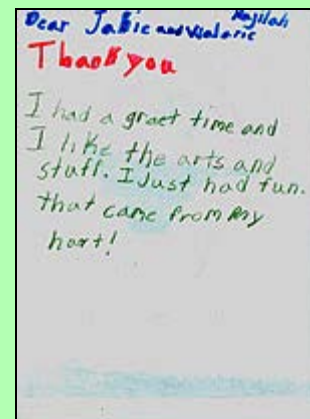 Dear Jabie and Valarie
Majilah
Thank you
I had a graet time and
I like the arts and
stuff. I Just had fun.
that came from my
hart!